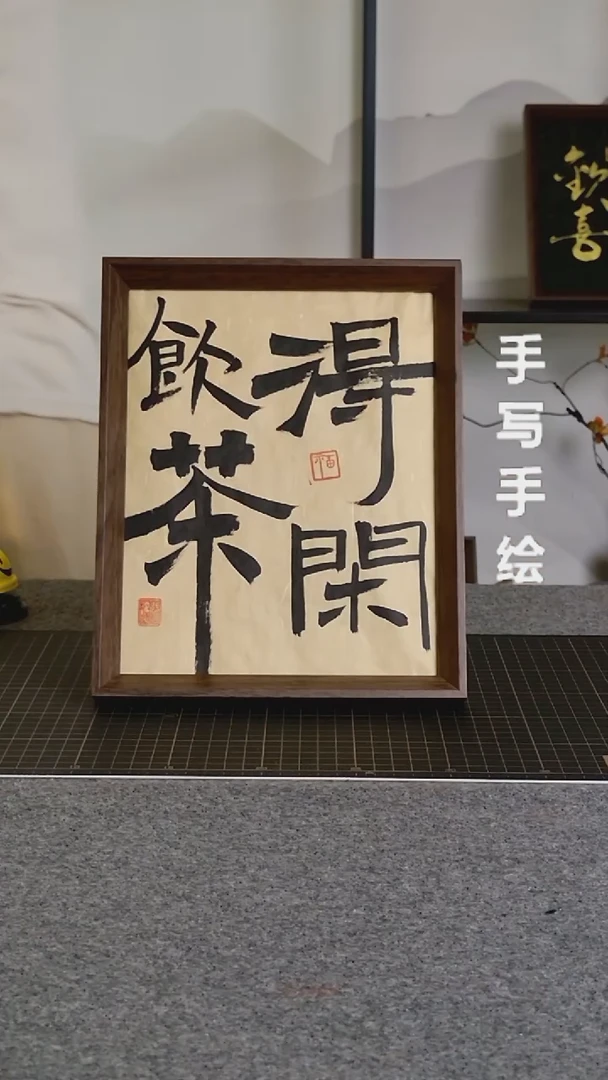 得閑
飲茶
手写手绘
喜